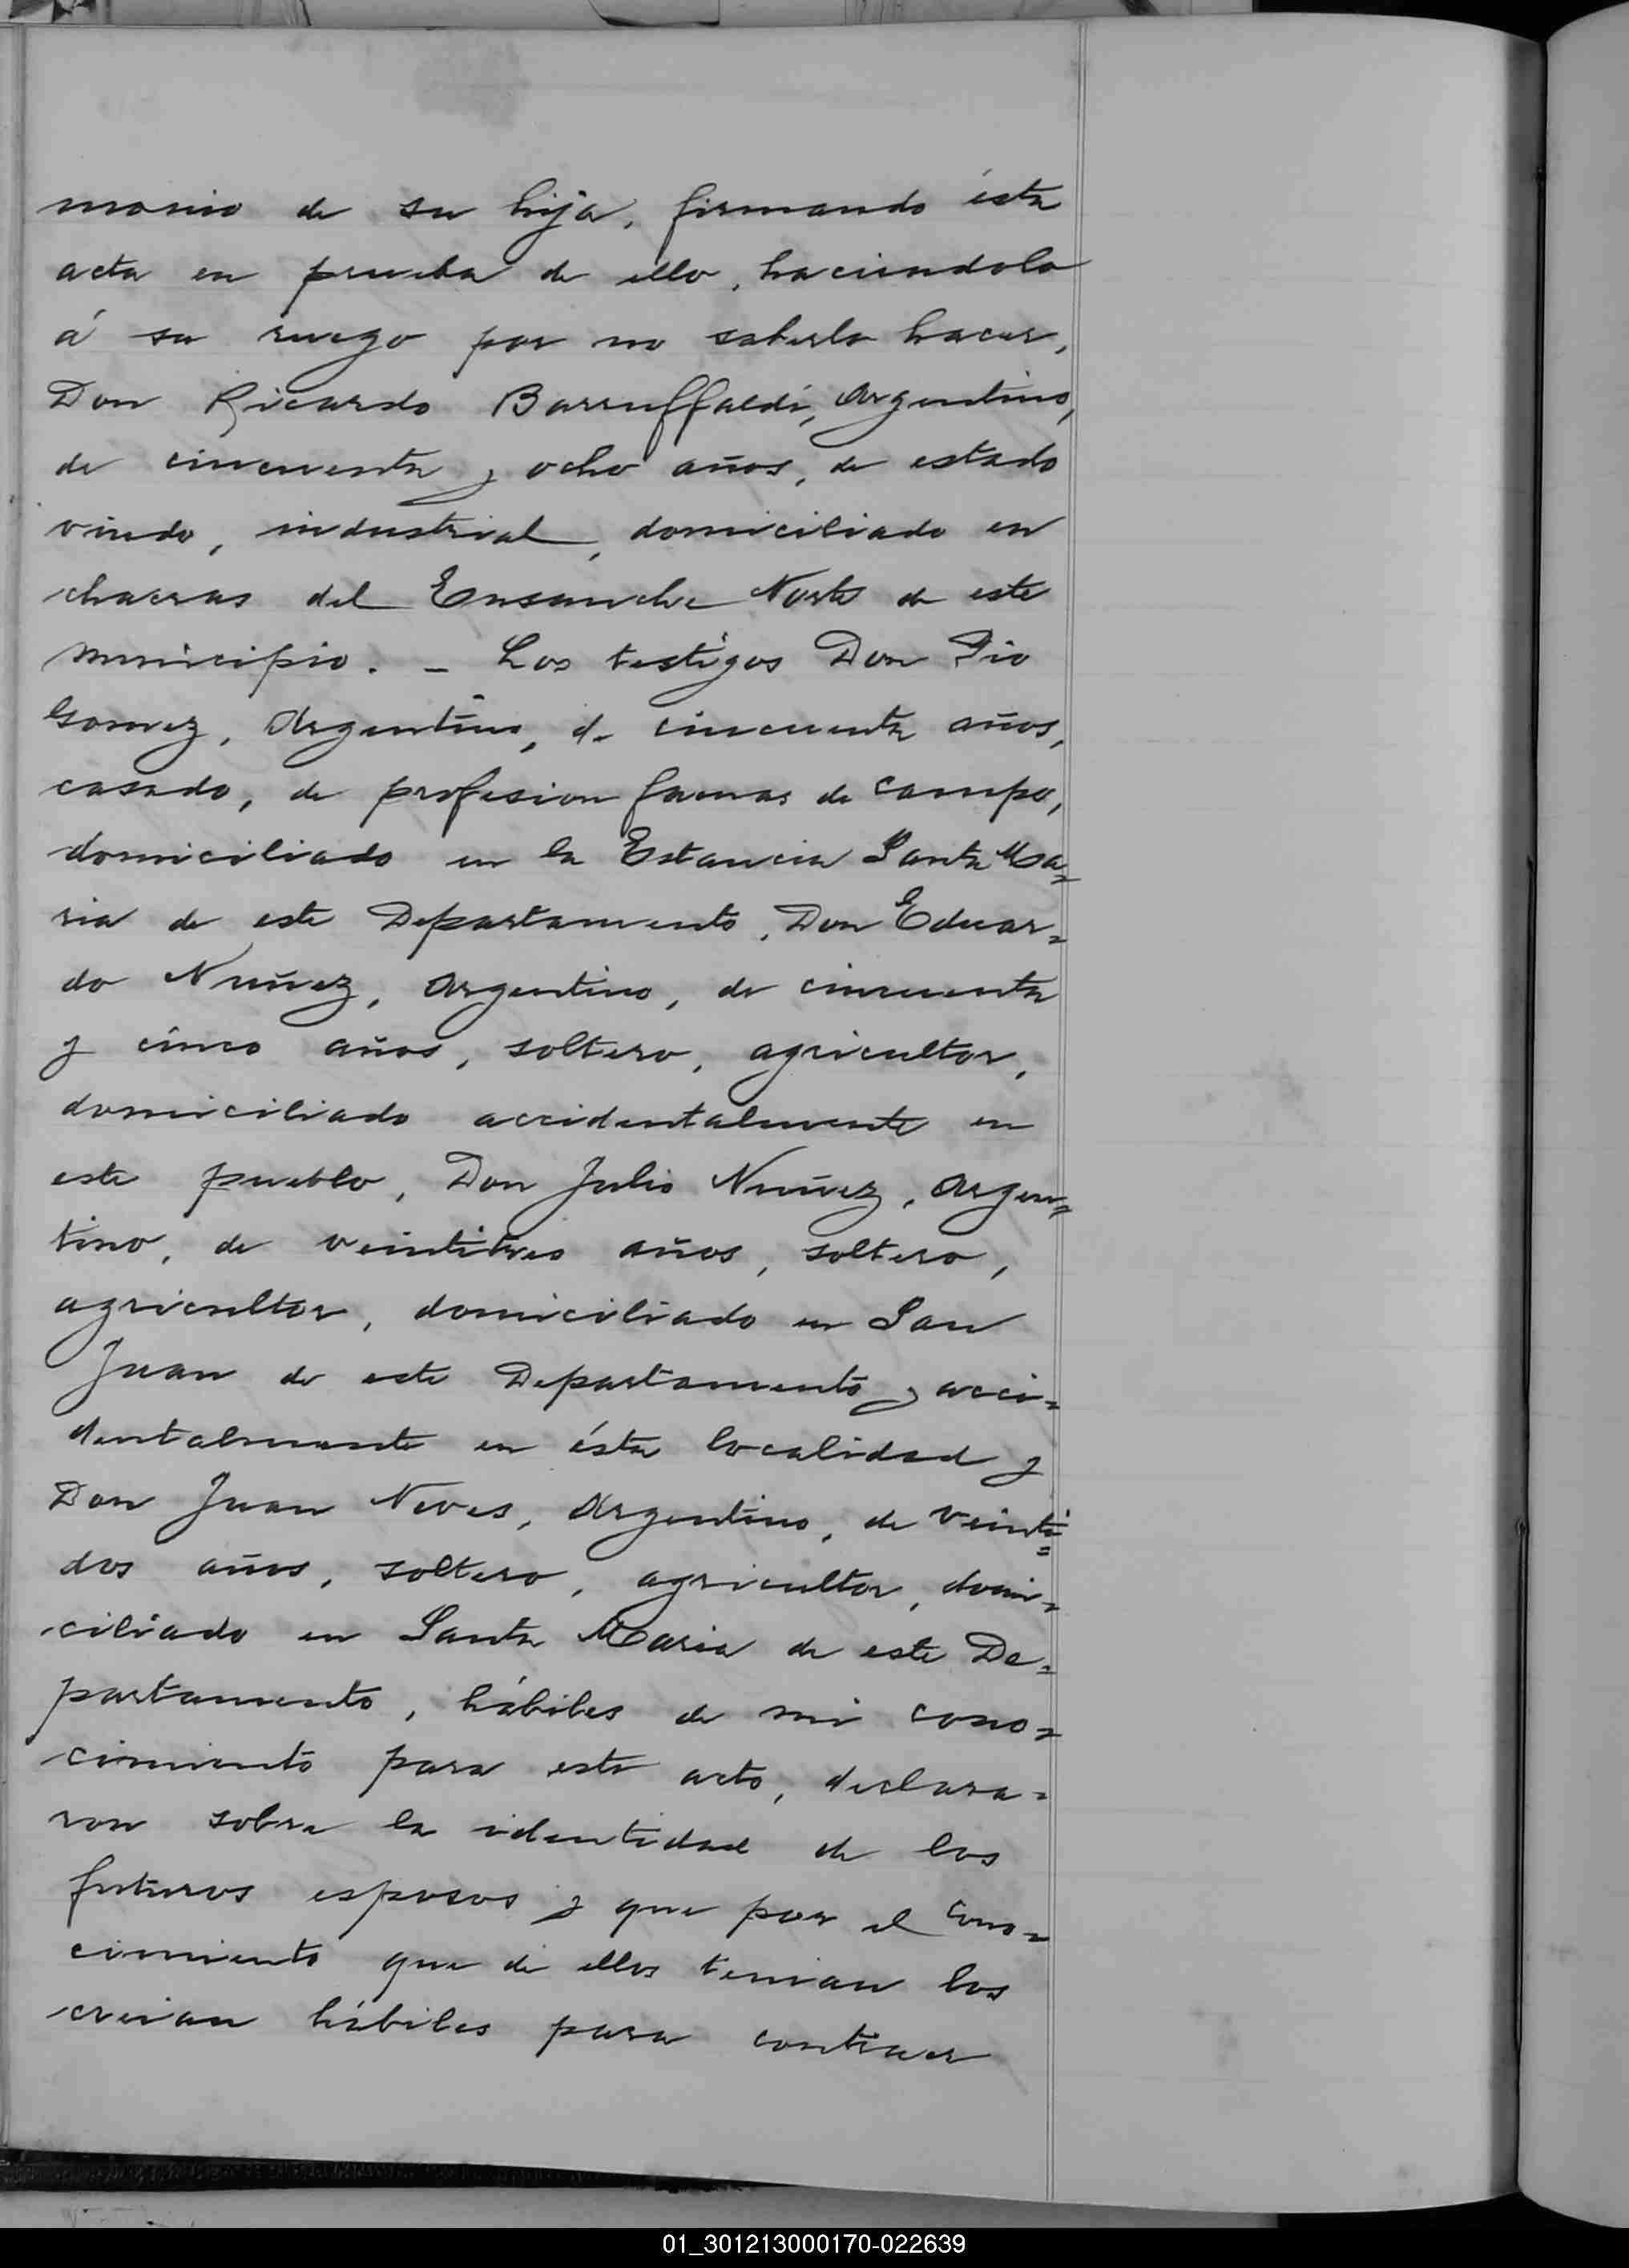 monio de su hija, firmando ésta
acta en prueba de ello, haciendolo
á su ruego por no saberlo hacer,
Don Ricardo Barruffaldi, Argentino,
de cincuenta y ocho años, de estado
viudo, industrial, domiciliado en
chacras del Ensanche Norte de este
municipio. - Los testigos Don Pio
Gomez, Argentino, de cincuenta años,
casado, de profesion faenas de campo,
domiciliado en la Estancia Santa Ma=
ria de este Departamento, Don Eduar=
do Nuñez, Argentino, de cincuenta
y cinco años, soltero, agricultor,
domiciliado accidentalmente en
este pueblo, Don Julio Nuñez, Argen=
tino, de veintitres años, soltero,
agricultor, domiciliado en San
Juan de este Departamento y acci=
dentalmente en ésta localidad y
Don Juan Neves, Argentino, de veinti=
dos años, soltero, agricultor, domi=
ciliado en Santa Maria de este De=
partamento, hábiles de mi cono=
cimiento para este acto, declara=
ron sobre la identidad de los
futuros esposos y que por el cono=
cimiento que de ellos tenian los
creian hábiles para contraer
01_301213000170-022639